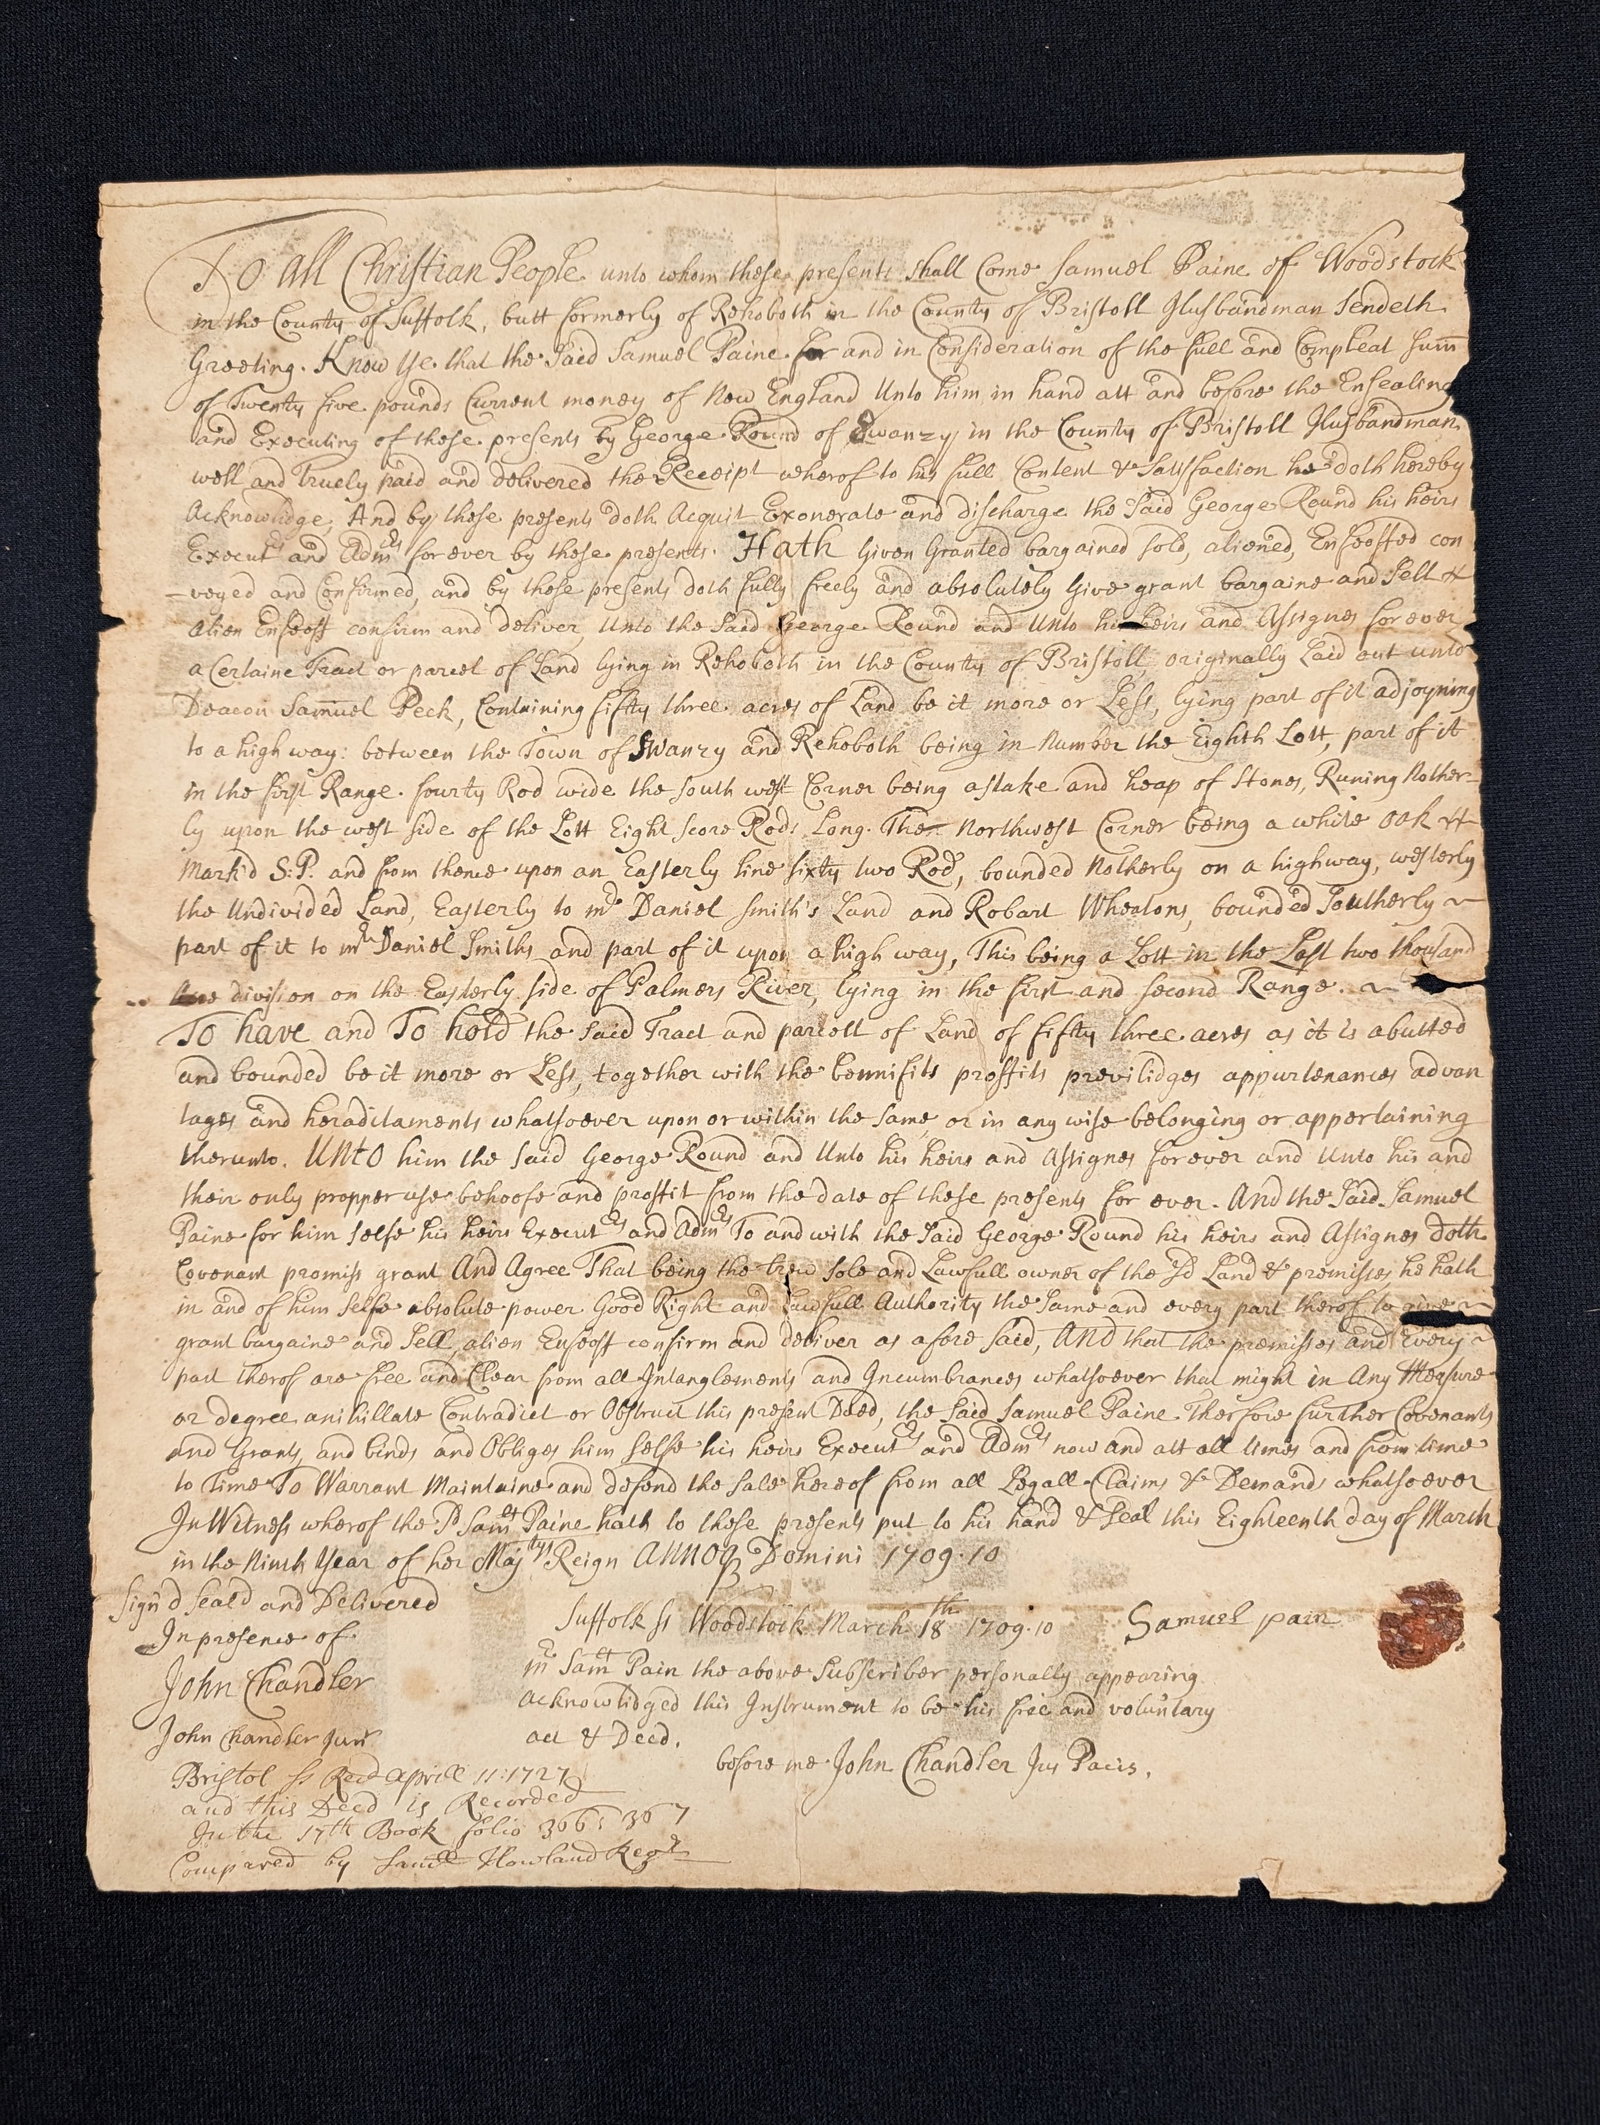 To All Christian People unto whom these presents shall Come Samuel Paine of Woodstock
in the County of Suffolk, butt formerly of Rehoboth in the County of Bristoll Husbandman Sendeth
Greeting. Know Ye that the Said Samuel Paine for and in Consideration of the full and Compleat Sum̅
of Twenty five pounds Current money of New England Unto him in hand att and before the Ensealing
and Executing of these presents by George Round of Swanzy in the County of Bristoll Husbandman
well and Truely paid and delivered the Receipt wherof to his full Content & Satisfaction he doth hereby
Acknowlidge, And by these presents doth Acquit Exonerate and discharge the Said George Round his heirs
Execut^rs and Adm^rs forever by these presents. Hath Given Granted bargained sold, aliened, Enfeoffed con
-veyed and Confirmed, and by these presents doth fully freely and absolutely Give grant bargaine and Sell &
alien Enfeoff confirm and deliver Unto the Said George Round and Unto his heirs and Assignes forever
a Certaine Tract or parcel of Land lying in Rehoboth in the County of Bristoll, originally Laid out unto
Deacon Sam̅uel Peck, Containing fifty three acres of Land be it more or Less, lying part of it adjoyning
to a high way: between the Town of Swanzy and Rehoboth being in Number the Eighth Lott, part of it
in the first Range. fourty Rod wide the South west Corner being a stake and heap of Stones, Runing Nother-
ly upon the west side of the Lott Eight Score Rods Long. The Northwest Corner being a white oak
Mark'd S:P. and from thence upon an Easterly line sixty two Rod, bounded Notherly on a highway, westerly
the Undivided Land, Easterly to mr Daniel Smith's Land and Robart Wheatons, bounded Southerly ~
part of it to mr Daniel Smiths and part of it upon a high way, This being a Lott in the Last two thousand
acre division on the Easterly side of Palmers River, lying in the first and second Range. ~
To have and To hold the Said Tract and parcell of Land of fifty three acres as it is abutted
and bounded be it more or Less, together with the bennifits proffits previlidges appurtenances advan
tages and heraditaments whatsoever upon or within the Same, or in any wise belonging or appertaining
therunto. Unto him the Said George Round and Unto his heirs and Assignes forever and Unto his and
their only propper use behoofe and proffit from the date of these presents for ever. And the Said Samuel
Paine for him selfe his heirs Execut^rs and Adm^rs To and with the Said George Round his heirs and Assignes doth
Covenant promiss grant And Agree That being the trew sole and Lawfull owner of the sd Land & premisses he hath
in and of him selfe absolute power Good Right and Lawfull Authority the Same and every part therof to give ~
grant bargaine and Sell, alien Enfeoff confirm and deliver as afore Said, And that the premisses and Every ~
part therof are free and Clear from all Intanglements and Incumbrances whatsoever that might in Any Measure
or degree anihillate Contradict or Obstruct this present Deed, the Said Samuel Paine Therfore further Covenants
and Grants, and binds and Obliges him selfe his heirs Execut^rs and Adm^rs now and att all times and from time
to Time To Warrant Maintaine and defend the Sale hereof from all Legall Claims & Demands whatsoever
In Witness wherof the sd Sam^ll Paine hath to these presents put to his hand & Seal this Eighteenth day of March
in the Ninth Year of her Maj^tys Reign Annoq Domini 1709.10
Sign'd Seal'd and Delivered
In presence of
John Chandler
John Chandler Junr
Suffolk ss Woodstock March 18th 1709.10
mr Sam^ll Pain the above Subscriber personally appearing
acknowlidged this Instrument to be his free and voluntary
act & Deed.
before me John Chandler Jus Pacis.
Samuel pain
Bristol ss Recd aprill 11: 1727
and this Deed is Recorded
In the 17th Book folio 366: 367
Compared by Samll Howland Regr